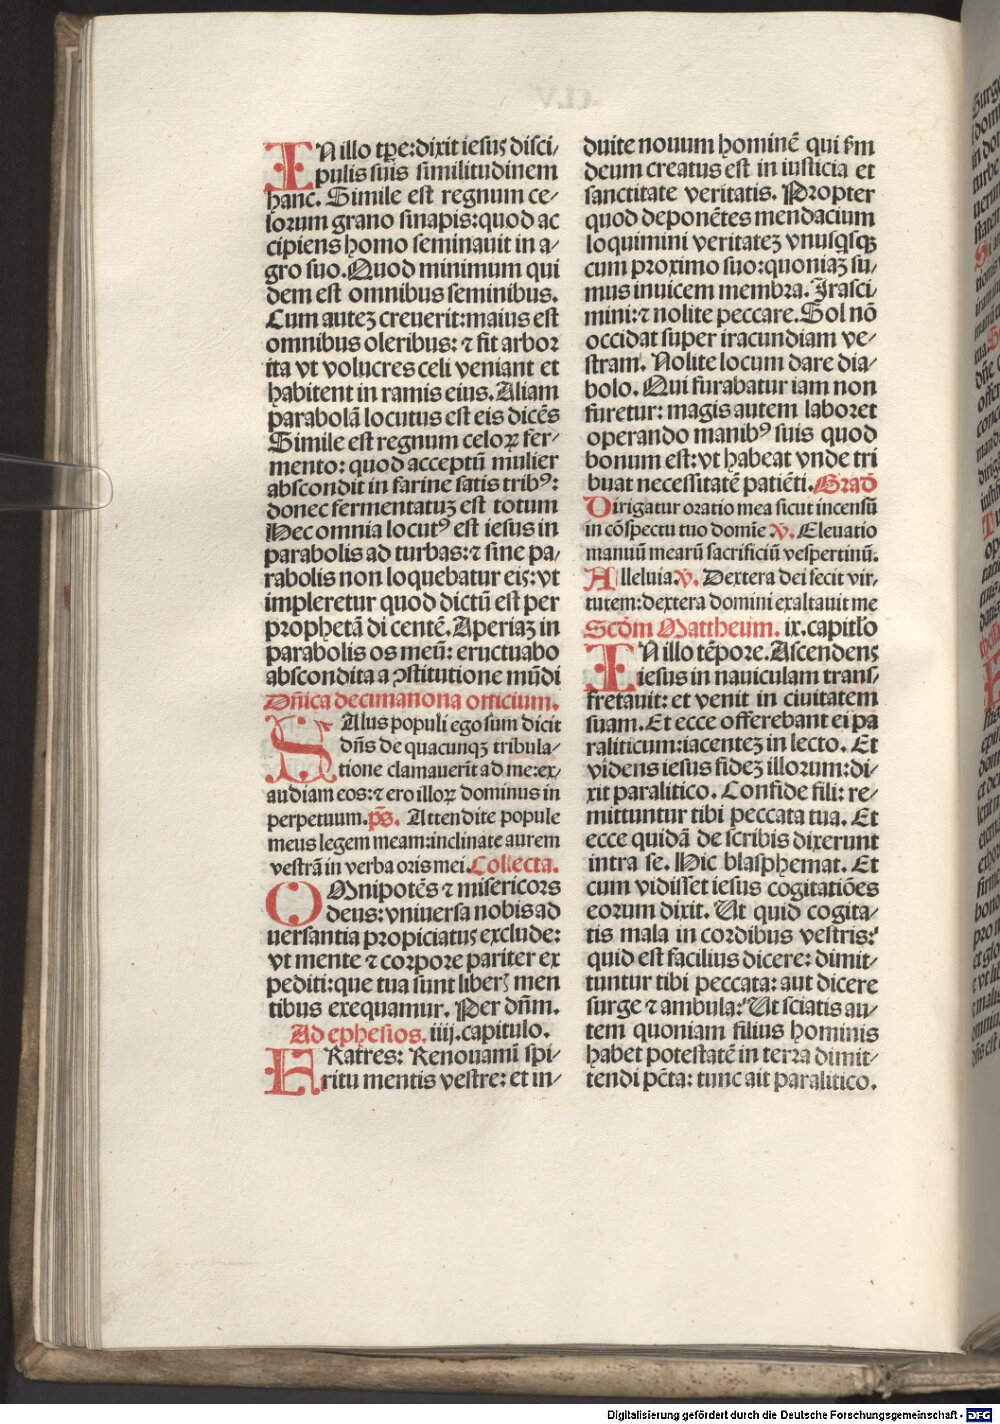 IN illo tꝑe: dixit iesus disci/
pulis suis similitudinem
hanc. Simile est regnum ce/
lorum grano sinapis: quod ac
cipiens homo seminauit in a/
gro suo. Quod minimum qui
dem est omnibus seminibus.
Cum auteꝫ creuerit: maius est
omnibus oleribus: ⁊ fit arbor
ita vt volucres celi veniant et
habitent in ramis eius. Aliam
parabolā locutus est eis dicēs
Simile est regnum celoꝝ fer/
mento: quod acceptū mulier
abscondit in farine satis tribꝰ:
donec fermentatuꝫ est totum
Hec omnia locutꝰ est iesus in
parabolis ad turbas: ⁊ sine pa/
rabolis non loquebatur eis: vt
impleretur quod dictū est per
prophetā dicentē. Aperiaꝫ in
parabolis os meū: eructuabo
abscondita a ꝯstitutione mūdi
Dn̄ica decimanona officium.
SAlus populi ego sum dicit
dn̄s de quacunqꝫ tribula/
tione clamauerīt ad me: ex/
audiam eos: ⁊ ero illoꝝ dominus in
perpetuum. ps̄. Attendite popule
meus legem meam: inclinate aurem
vestrā in verba oris mei. Collecta.
OMnipotēs ⁊ misericors
deus: vniuersa nobis ad
uersantia propiciatus exclude:
vt mente ⁊ corpore pariter ex
pediti: que tua sunt liberꝭ men
tibus exequamur. Per dn̄m.
Ad ephesios. iiij. capitulo.
FRatres: Renouamī spi/
ritu mentis vestre: et in/
duite nouum hominē qui sm̄
deum creatus est in iusticia et
sanctitate veritatis. Propter
quod deponētes mendacium
loquimini veritateꝫ vnusqsqꝫ
cum proximo suo: quoniaꝫ su/
mus inuicem membra. Irasci/
mini: ⁊ nolite peccare. Sol nō
occidat super iracundiam ve/
stram. Nolite locum dare dia/
bolo. Qui furabatur iam non
furetur: magis autem laboret
operando manibꝰ suis quod
bonum est: vt habeat vnde tri
buat necessitatē patiēti. Grad̄
Dirigatur oratio mea sicut incensū
in cōspectu tuo domīe ℣. Eleuatio
manuū mearū sacrificiū vespertinū.
Alleluia. ℣. Dextera dei fecit vir/
tutem: dextera domini exaltauit me
Scd̄m Mattheum. ix. capitl̄o
IN illo tēpore. Ascendens
iesus in nauiculam trans/
fretauit: et venit in ciuitatem
suam. Et ecce offerebant ei pa
raliticum: iacenteꝫ in lecto. Et
videns iesus fideꝫ illorum: di/
xit paralitico. Confide fili: re/
mittuntur tibi peccata tua. Et
ecce quidā de scribis dixerunt
intra se. Hic blasphemat. Et
cum vidisset iesus cogitatiōes
eorum dixit. Ut quid cogita/
tis mala in cordibus vestris:
quid est facilius dicere: dimit/
tuntur tibi peccata: aut dicere
surge ⁊ ambula: Ut sciatis au/
tem quoniam filius hominis
habet potestatē in terra dimit/
tendi pc̄ta: tunc ait paralitico.
Digitalisierung gefördert durch die Deutsche Forschungsgemeinschaft - DFG